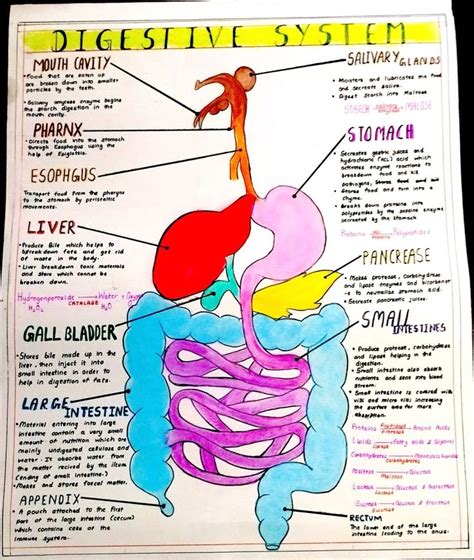 DIGESTIVE SYSTEM
MOUTH CAVITY
• Food that are eaten up
are broken down into smaller
particles by the teeth.
• Salivary amylase enzyme begins
the starch digestion in the
mouth cavity.
PHARNX
• Directs food into the stomach
through Esophagus using the
help of Epiglottis.
ESOPHGUS
Transport food from the pharynx
to the stomach by peristaltic
movements.
LIVER
• Produce Bile which helps to
breakdown fats and get rid
of waste in the body.
• Liver breakdown toxic materials
and store which cannot be
broken down.
Hydrogenperoxide → Water +
H₂O₂ CATALASE H₂O
GALL BLADDER
• Stores bile made up in the
liver, then inject it into
small intestine in order to
help in digestion of fats.
LARGE
INTESTINE
• Material entering into large
intestine contain a very small
amount of nutrition which are
mainly undigested cellulous and
water. It absorbs water from
the matter recived by the ileum
(ending of small intestine.)
• Makes and stores faecal matter.
APPENDIX
• A pouch attached to the first
part of the large intestine (cecum)
which contains cells of the
immune system.
SALIVARY GLANDS
• Moistens and lubricates the food
and secrete saliva.
• Digest Starch into Maltose
STARCH → MALOSE
STOMACH
• Secretes gastric juices and
hydrochloric (HCL) acid which
activates enzyme reactions to
breakdown food and kill
pathogens,
• Stores food and turn into a
chyme.
• Breaks down proteins into
polypeptides by the
enzyme
secreted by the stomach.
Proteins → Polypeptides
PANCREASE
• Makes protease, carbohydrase
and lipase enzymes and bicarbonat
-e to neutralise stomach acid.
• Secrete pancreatic juices.
SMALL
INTESTINES
• Produce protease, carbohydrase
and lipase helping in the
digestion.
• Small intestine also absorb
nutrients and sens into blood
stream.
• Small intestine is covered with
villi and micro villi increasing
the surface area for more
absorption.
Proteins → Amino Acids
Lipids → Fatty acids &
Carbohydrates →
Maltose → Glucose
Lactose → Glucose &
Sucrose → Glucose & Fructose
RECTUM
The lower end of the large
intestine leading to the anus.